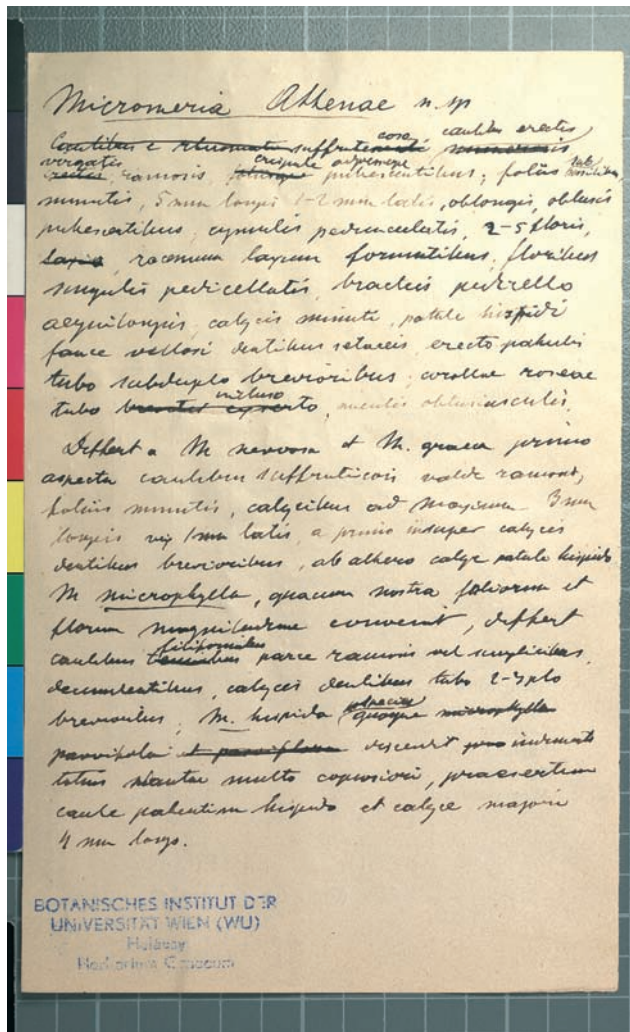 Micromeria Athenae n. sp
Caulibus e rhizomate suffrutescente cosa caulibus erectis numerosis
virgatis ramosis, crispule adpresseque pubescentibus, foliis subsessilibus,
minutis, 5 mm longis 1-2 mm latis, oblongis, obtusis
pubescentibus, cymulis pedunculatis, 2-5 floris,
laxis, racemum laxum formantibus, floribus
singulis pedicellatis, bracteis pedicello
aequilongis, calycis minuti, patule hispidi
fauce villosi dentibus setaceis, erecto patulis
tubo subduplo brevioribus, corollae roseae
tubo incluso, nuculis obtusiusculis.
Differt a M nervosa et M. graeca primo
aspectu caulibus suffruticosis valde ramosis,
foliis minutis, calycibus ad maximum 3 mm
longis vix 1 mm latis, a primo insuper calycis
dentibus brevioribus, ab altero calyce patule hispido
M microphylla, quacum nostra foliorum et
florum magnitudine convenit, differt
caulibus filiformibus parce ramosis vel simplicibus,
decumbentibus, calycis dentibus tubo 2-3plo
brevioribus, M. hispida quoque microphylla
parvifolia et parviflora indumento
totius plantae multo copiosiori, praesertim
caule patentim hispido et calyce majori
4 mm longo.
BOTANISCHES INSTITUT DER
UNIVERSITÄT WIEN (WU)
Halácsy
Herbarium Graecum